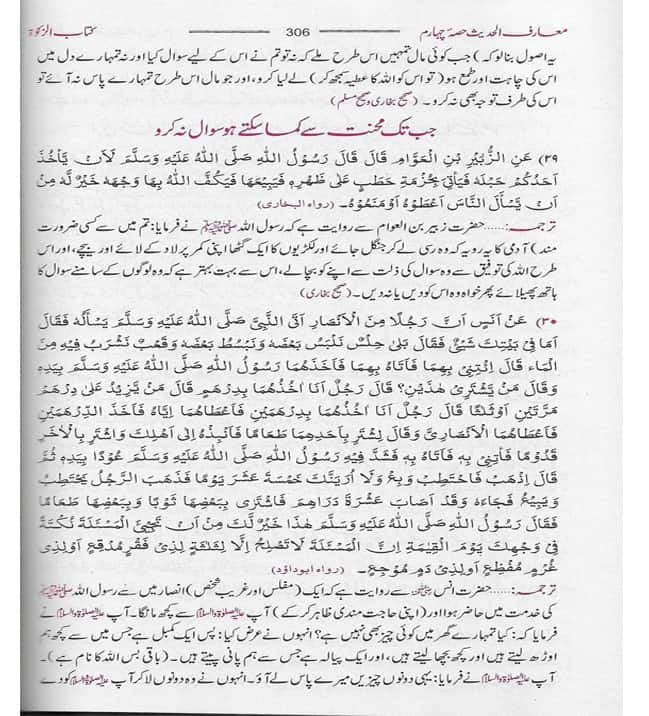 معارف الحدیث حصۂ چہارم 306 کتاب الزکوٰۃ
یہ اصول بنا لو کہ) جب کوئی مال تمہیں اس طرح ملے کہ نہ تو تم نے اس کے لیے سوال کیا اور نہ تمہارے دل میں
اس کی چاہت اور طمع ہو (تو اس کو اللہ کا عطیہ سمجھ کر) لے لیا کرو، اور جو مال اس طرح تمہارے پاس نہ آئے تو
اس کی طرف توجہ بھی نہ کرو۔ (صحیح بخاری و صحیح مسلم)
جب تک محنت سے کما سکتے ہو سوال نہ کرو
۲۹) عَنِ الزُّبَيْرِ بْنِ الْعَوَّامِ قَالَ قَالَ رَسُوْلُ اللهِ صَلَّى اللهُ عَلَيْهِ وَسَلَّمَ لَاَنْ يَّأْخُذَ
اَحَدُكُمْ حَبْلَهٗ فَيَأْتِيَ بِحُزْمَةِ حَطَبٍ عَلٰى ظَهْرِهٖ فَيَبِيْعَهَا فَيَكُفَّ اللهُ بِهَا وَجْهَهٗ خَيْرٌ لَّهٗ مِنْ
اَنْ يَّسْأَلَ النَّاسَ اَعْطَوْهُ اَوْ مَنَعُوْهُ۔ (رواه البخاری)
ترجمہ:......حضرت زبیر بن العوام سے روایت ہے کہ رسول اللہ ﷺ نے فرمایا: تم میں سے کسی ضرورت
مند) آدمی کا یہ رویہ کہ وہ رسی لے کر جنگل جائے اور لکڑیوں کا ایک گٹھا اپنی کمر پر لاد کے لائے اور بیچے، اور اس
طرح اللہ کی توفیق سے وہ سوال کی ذلت سے اپنے کو بچا لے، اس سے بہت بہتر ہے کہ وہ لوگوں کے سامنے سوال کا
ہاتھ پھیلائے پھر خواہ وہ اس کو دیں یا نہ دیں۔ (صحیح بخاری)
۳۰) عَنْ اَنَسٍ اَنَّ رَجُلًا مِنَ الْاَنْصَارِ اَتَى النَّبِيَّ صَلَّى اللهُ عَلَيْهِ وَسَلَّمَ يَسْأَلُهٗ فَقَالَ
اَمَا فِيْ بَيْتِكَ شَيْئٌ فَقَالَ بَلٰى حِلْسٌ نَلْبَسُ بَعْضَهٗ وَنَبْسُطُ بَعْضَهٗ وَقَعْبٌ نَشْرَبُ فِيْهِ مِنَ
الْمَاء قَالَ اِئْتِنِيْ بِهِمَا فَاَتَاهُ بِهِمَا فَاَخَذَهُمَا رَسُوْلُ اللهِ صَلَّى اللهُ عَلَيْهِ وَسَلَّمَ بِيَدِهٖ
وَقَالَ مَنْ يَّشْتَرِيْ هٰذَيْنِ؟ قَالَ رَجُلٌ اَنَا اٰخُذُهُمَا بِدِرْهَمٍ قَالَ مَنْ يَّزِيْدُ عَلٰى دِرْهَمٍ
مَرَّتَيْنِ اَوْ ثَلٰثًا قَالَ رَجُلٌ اَنَا اٰخُذُهُمَا بِدِرْهَمَيْنِ فَاَعْطَاهُمَا اِيَّاهُ فَاَخَذَ الدِّرْهَمَيْنِ
فَاَعْطَاهُمَا الْاَنْصَارِيَّ وَقَالَ لِشْتَرِ بِاَحَدِهِمَا طَعَامًا فَانْبِذْهُ اِلٰى اَهْلِكَ وَاشْتَرِ بِالْاٰخَرِ
قَدُوْمًا فَأْتِنِيْ بِهٖ فَاَتَاهُ بِهٖ فَشَدَّ فِيْهِ رَسُوْلُ اللهِ صَلَّى اللهُ عَلَيْهِ وَسَلَّمَ عُوْدًا بِيَدِهٖ ثُمَّ
قَالَ اِذْهَبْ فَاحْتَطِبْ وَبِعْ وَلَا اُرَيَنَّكَ خَمْسَةَ عَشَرَ يَوْمًا فَذَهَبَ الرَّجُلُ يَحْتَطِبُ
وَيَبِيْعُ فَجَاءَهٗ وَقَدْ اَصَابَ عَشْرَةَ دَرَاهِمَ فَاشْتَرٰى بِبَعْضِهَا ثَوْبًا وَبِبَعْضِهَا طَعَامًا
فَقَالَ رَسُوْلُ اللهِ صَلَّى اللهُ عَلَيْهِ وَسَلَّمَ هٰذَا خَيْرٌ لَّكَ مِنْ اَنْ تَجِيْئَ الْمَسْئَلَةُ نُكْتَةً
فِيْ وَجْهِكَ يَوْمَ الْقِيٰمَةِ اِنَّ الْمَسْئَلَةَ لَا تَصْلُحُ اِلَّا لِثَلٰثَةٍ لِذِيْ فَقْرٍ مُّدْقِعٍ اَوْلِذِيْ
غُرْمٍ مُّفْظِعٍ اَوْلِذِيْ دَمٍ مُّوْجِعٍ۔ (رواه ابوداؤد)
ترجمہ:......حضرت انس ؓ سے روایت ہے کہ ایک (مفلس اور غریب شخص) انصار میں نے رسول اللہ ﷺ
کی خدمت میں حاضر ہوا اور (اپنی حاجت مندی ظاہر کر کے) آپ علیہ الصلوٰۃ والسلام سے کچھ مانگا۔ آپ علیہ الصلوٰۃ والسلام نے
فرمایا کہ: کیا تمہارے گھر میں کوئی چیز بھی نہیں ہے؟ انہوں نے عرض کیا: بس ایک کمبل ہے جس میں سے کچھ ہم
اوڑھ لیتے ہیں اور کچھ بچھا لیتے ہیں، اور ایک پیالہ ہے جس سے ہم پانی پیتے ہیں۔ (باقی بس اللہ کا نام ہے)۔
آپ علیہ الصلوٰۃ والسلام نے فرمایا: یہی دونوں چیزیں میرے پاس لے آؤ۔ انہوں نے وہ دونوں لا کر آپ علیہ الصلوٰۃ والسلام کو دے